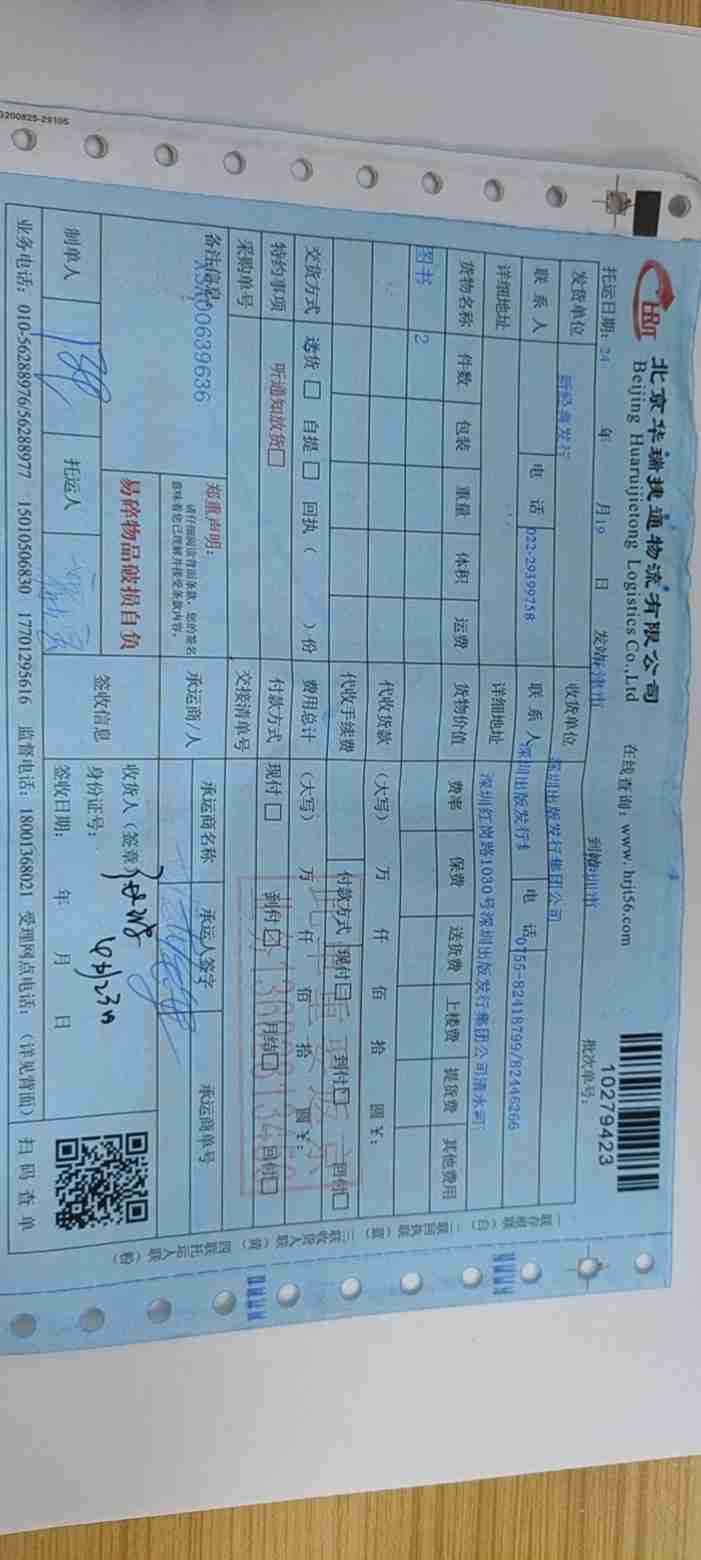 北京华瑞捷通物流有限公司
Beijing Huaruijietong Logistics Co.,Ltd
在线查询：www.hrjt56.com
10279423
托运日期：24 年 月19 日 发站 天津市 到站 深圳市 批次单号：
发货单位 新经典发行 收货单位 深圳出版发行集团公司
联系人 电话 022-29399758 联系人 深圳出版发行 电话 0755-82418799/82446266
详细地址 详细地址 深圳红岗路1030号深圳出版发行集团公司清水河
货物名称 件数 包装 重量 体积 运费 货物价值 费率 保费 送货费 上楼费 提货费 其他费用
图书 2
代收货款 （大写） 万 仟 佰 拾 圆 ￥：
代收手续费 付款方式 现付□ 到付□ 回付□
交货方式 送货□ 自提□ 回执（ ）份 费用总计 （大写） 万 仟 佰 拾 圆 ￥：
特约事项 听通知放货□ 付款方式 现付□ 到付☑ 月结□ 回付□
采购单号 交接清单号
备注信息 00639636
郑重声明：
请仔细阅读背面条款，您的签名
意味着您已理解并接受条款内容。
承运商/人 承运商名称 承运人签字 承运商单号
易碎物品破损自负
签收信息 收货人（签章）
身份证号：
签收日期： 年 月 日
制单人 托运人
扫码查单
业务电话：010-56288976/56288977 15010506830 17701295616 监督电话：18001368021 受理网点电话：（详见背面）
一联存根联（白） 二联回执联（蓝） 三联收货人联（黄） 四联托运人联（粉）
200825-29106